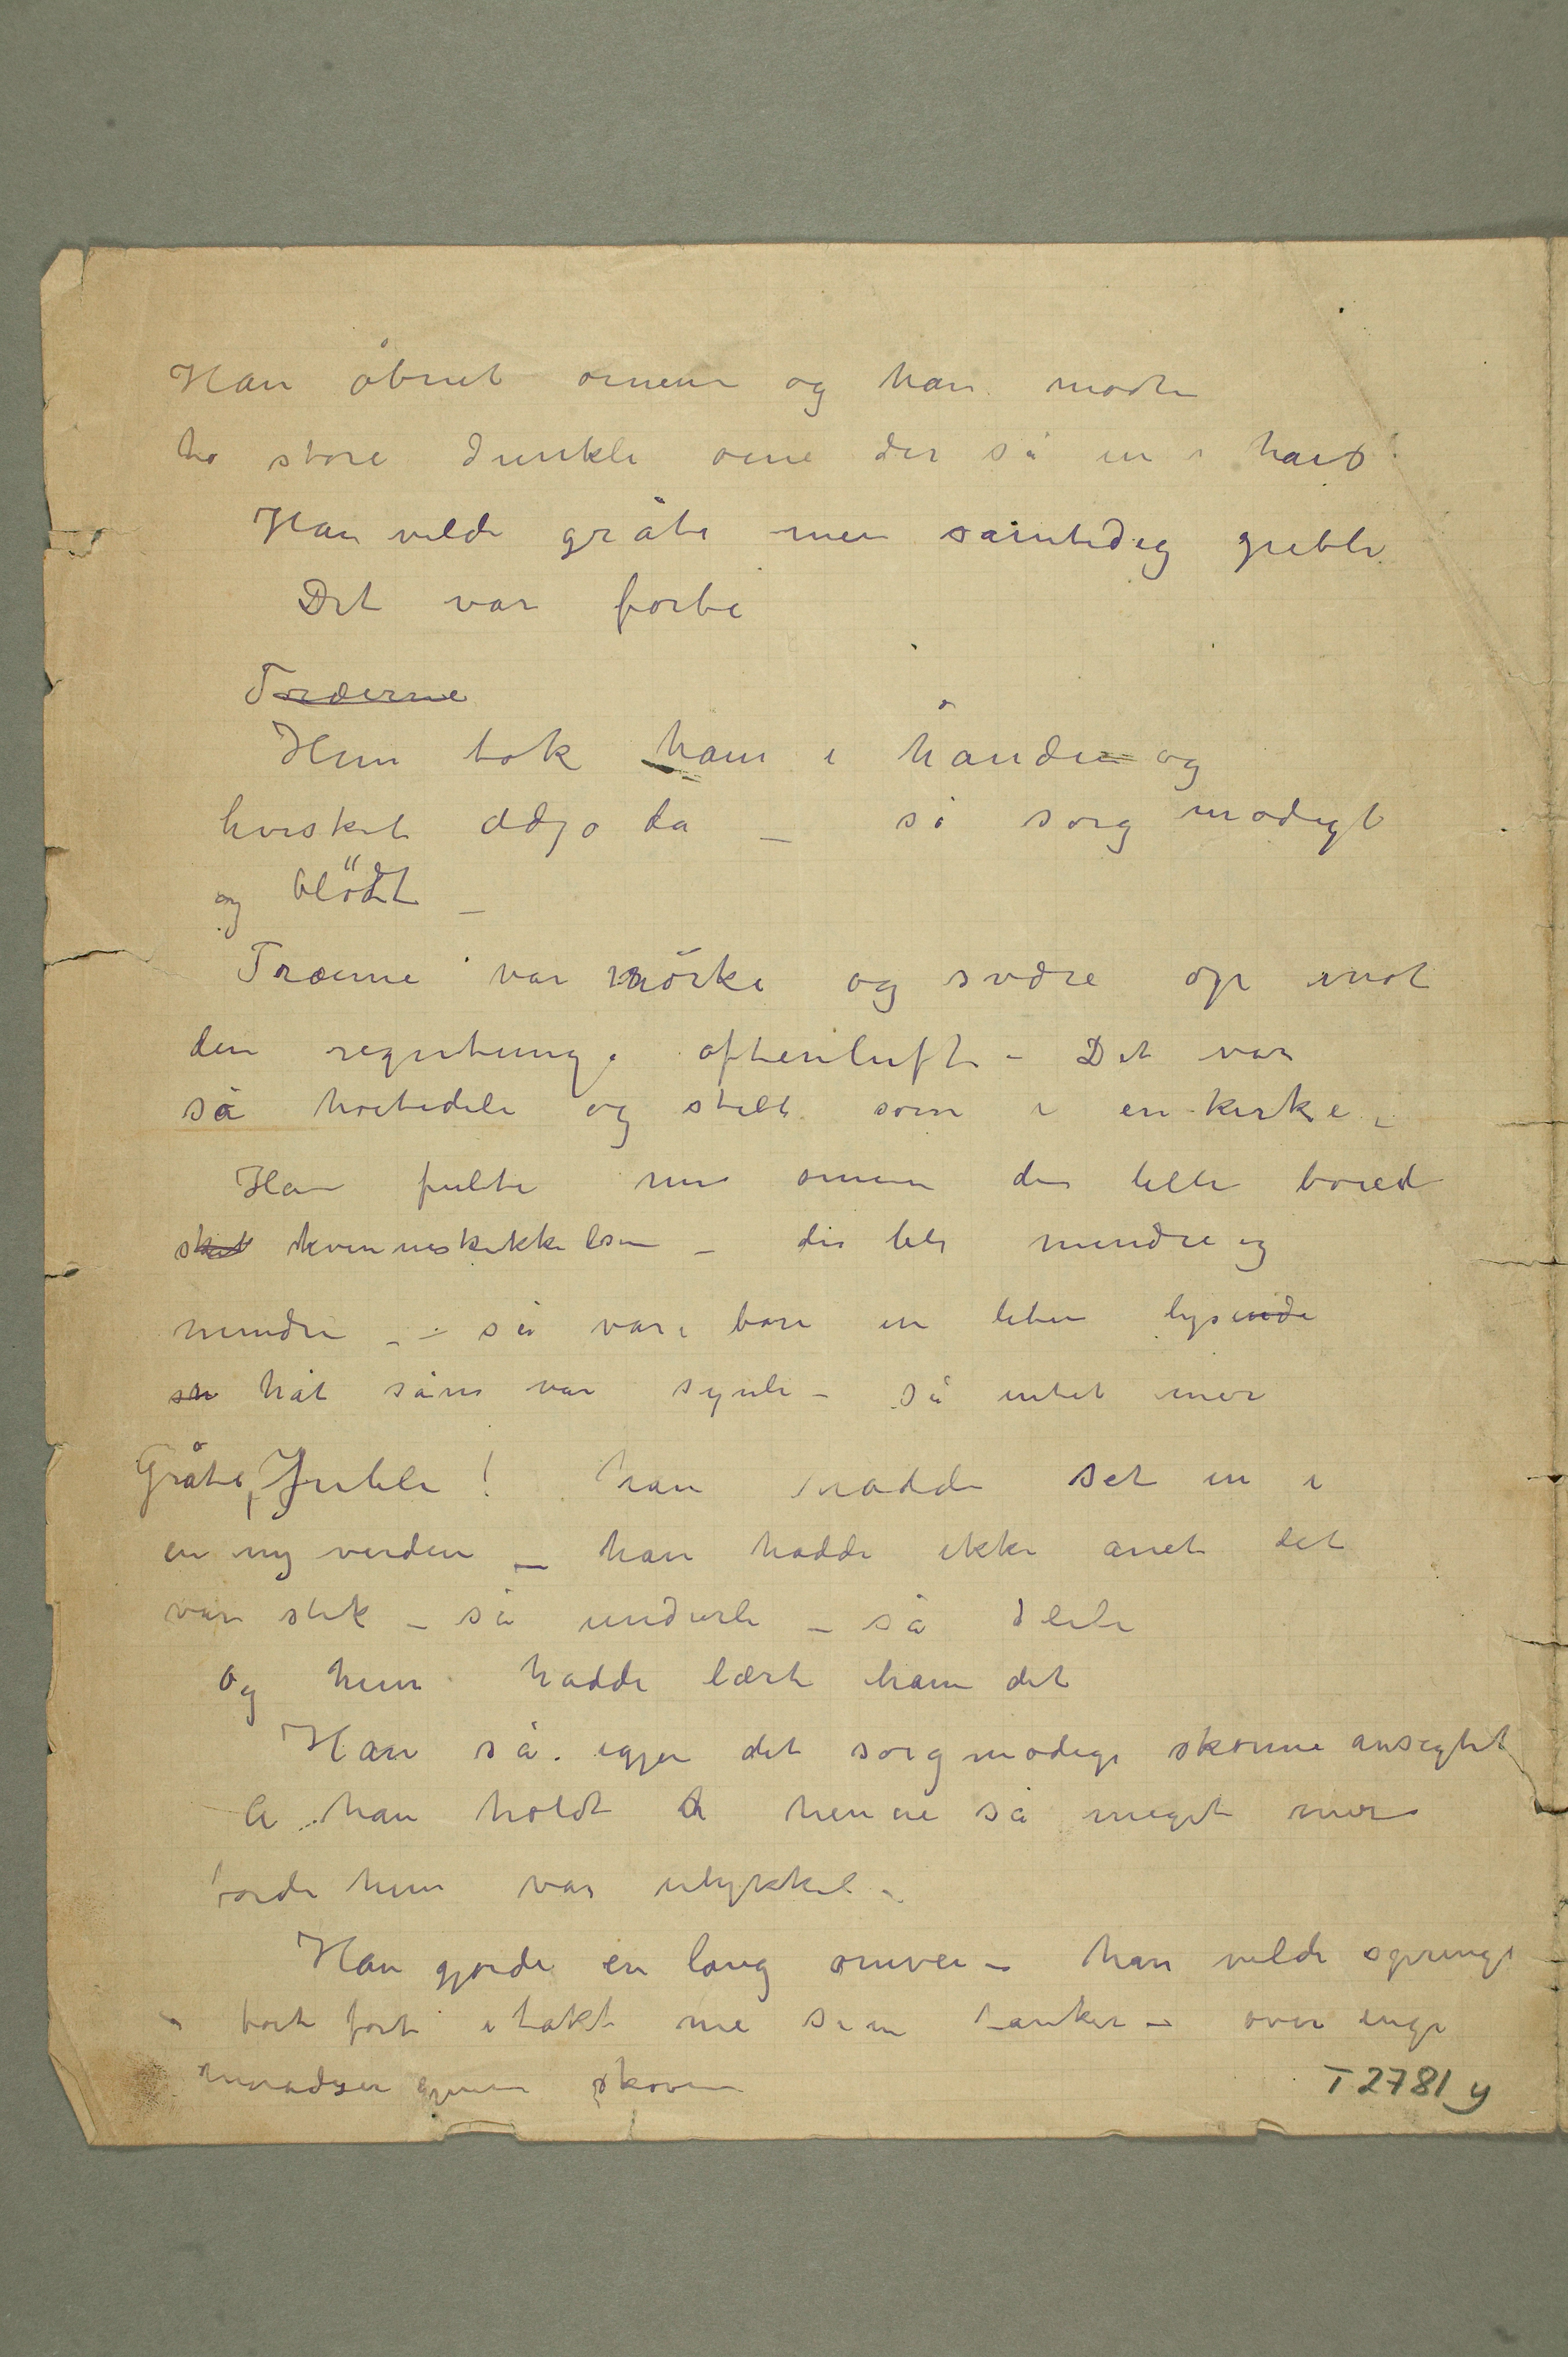 Han åbnet öinene og han mødte
to store dunkle öine der så in i hans
Han vilde gråte men samtidig juble
Det var forbi
Træerne
Hun tok ham i hånden og
hvisket adjø da – så sorgmodigt
og blödt –
Træerne var mörke og svære op imot
den regntunge aftenluft – Det var
så høitideli og stille som i en kirke –
Han fulte me öinene den lille boied
skik kvinneskikkelsen – den ble mindre og
mindre – – så var bare en liten lysende
sn hat såm var synli – så intet mer
Gråte, Juble! han hadde set in i
en ny verden – han hadde ikke anet det
var slik – så underli – så deili
Og hun hadde lært ham det
Han så igjen det sorgmodige skønne ansigtet
Å han holdt a henne så meget mer
fordi hun var ulykkeli –
Han gjorde en lang omvei – han vilde springe
bort fort i takt me sine tanker – over enge
moradser gjennem skoven
T 2781 y